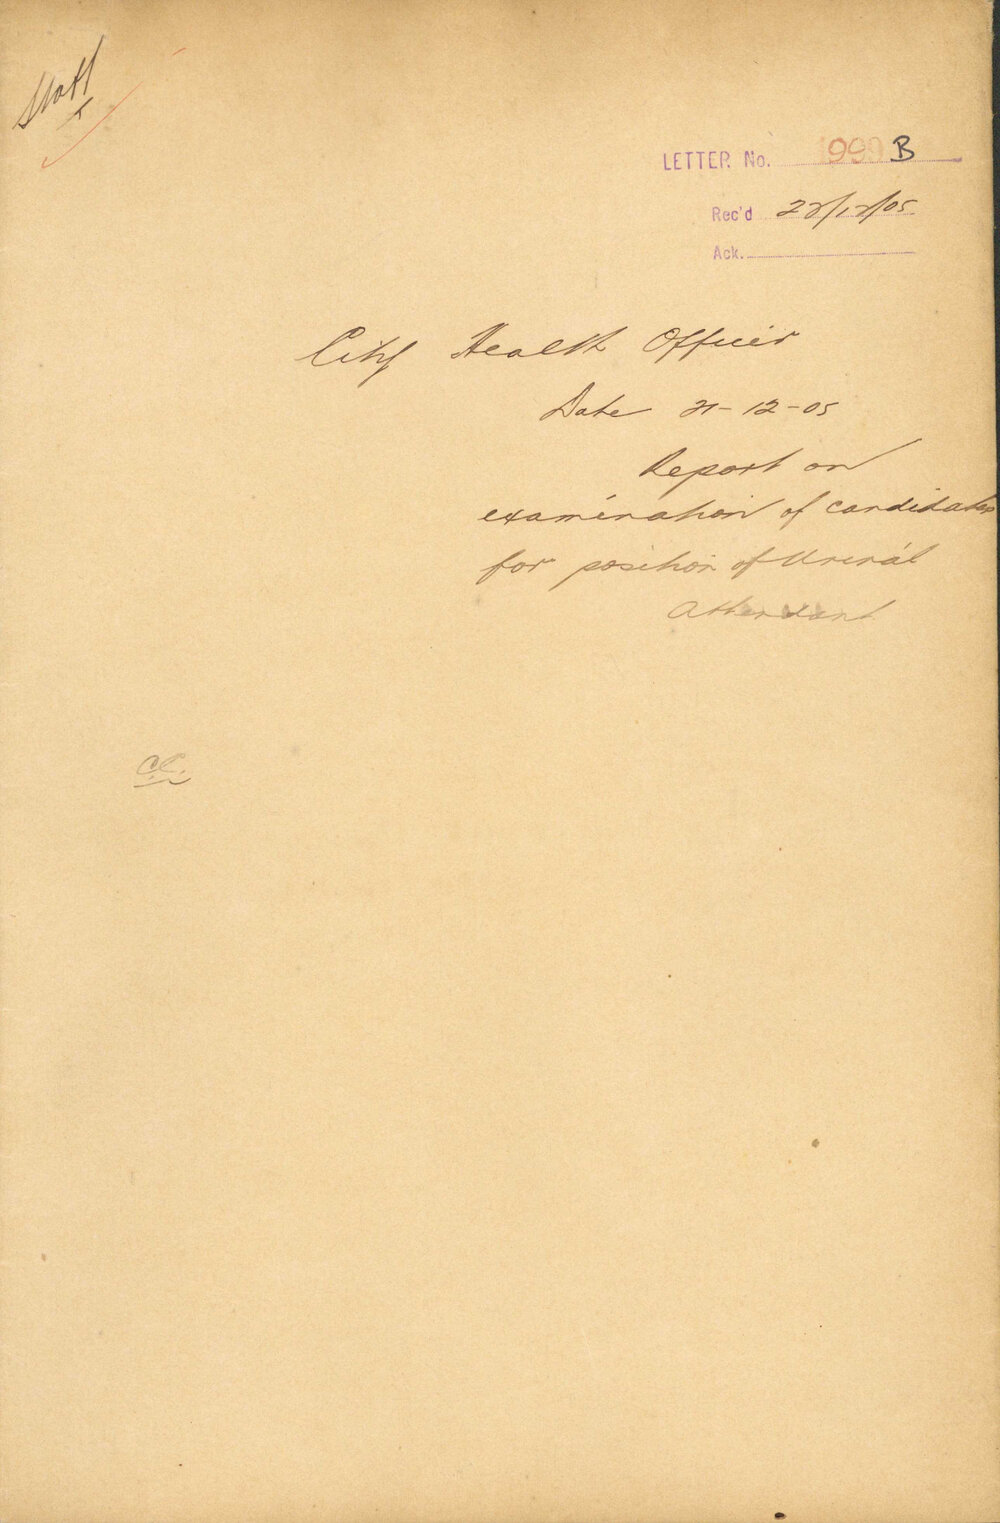 Staff
LETTER No. 1990 B
Rec'd 22/12/05
Ack.
City Health Officer
Date 21-12-05
Report on
examination of candidates
for position of Urinal
Attendant
C.C.